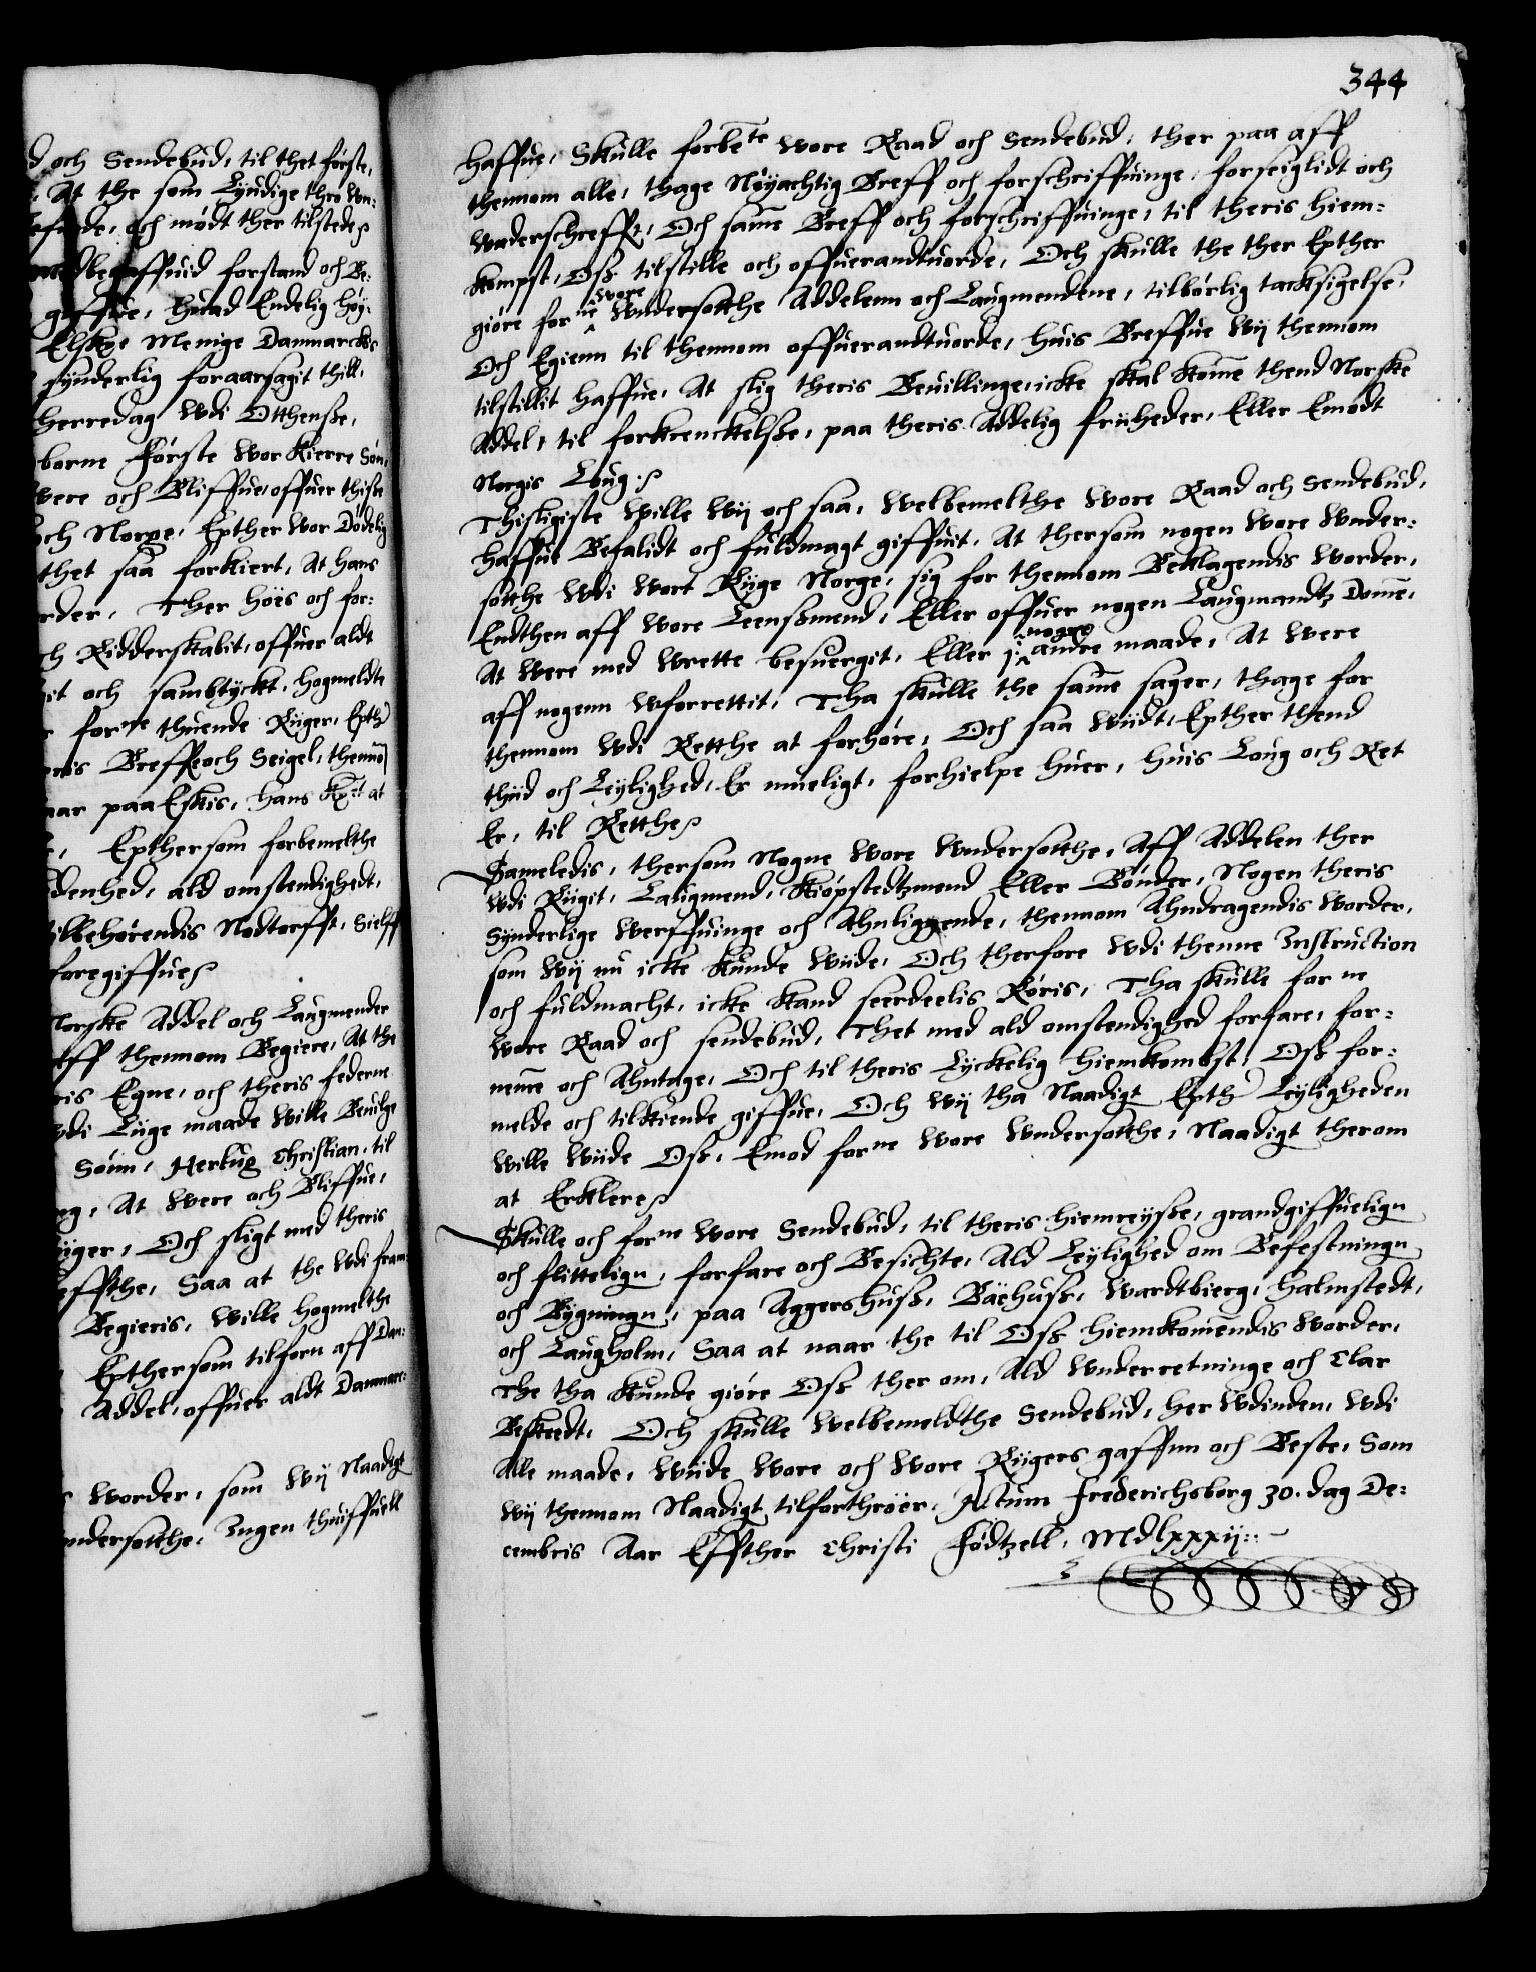 d och Sendebud, til thet første,
At the som Lyudige thro Wn:
efunde, och mødt ther tilstede
medbegaffuid forstand och Be:
giffue, huad Endelig Høy:
Elskte Menige Danmarcks
synderlig foraarsagit thill,
herredag Wdi Otthensse,
borne Første Wor Kierre Søn,
were och Bliffue, offuer thisse
och Norge, Epther Wor Dødelig
thet saa forklert, At hans
rder, Ther høis och for:
ch Ridderskabit, offuer aldt
it och sambtyckt, hogmeldte
forne thuende Riiger, Epther
ris Breffue och Seigel, thennom
aar paa Eskis, hans Kgt at
Epthersom forbemelthe
denhed, ald omstendighedt,
ilbehørendis Nødtorfft, Sielff
foregiffue
Norske Addel och Laugmender
aff thennom Begiere, At the
ris Egne, och theris federne
Wdi Liige maade Wille Beuilge
Sønn, Hertug Christian, til
ng, At Were och Bliffue,
iiger, Och sligt med theris
effthe, Saa at the Wdi fram:
Begieris, Wille hogmelthe
Epthersom tilforn aff Dan:
Addel, offuer aldt Danmarc:
Worder, som Wij Naadigt
ndersotthe, Ingen thuiffuell
344
Haffue, Skulle forbete Wore Raad och Sendebud, ther paa aff
thennom alle, thage Nøyachtig Breff och forschriffuinge, forseiglidt och
Wnderschreffe, Och same Breff och forschriffuinge, til theris Hiem:
kompst, Oss tilstille och offuerandtuorde, Och skulle the ther Epther
giøre forne wore Wndersotthe Addelenn och Laugmendene, tilbørlig tacksigelse,
Och Egienn til thennom offuerandtuorde, huis Breffue Wij thennom
tilstillit haffue, At slig theris Beuillinge, icke skal kome thend Norske
Addel, til forkrenckelsse, paa theris Addelig friiheder, Eller Emodt
Norgis Loug.
Thisligiste Wille Wij och saa, Welbemelthe Wore Raad och Sendebud,
haffue Befalidt och fuldmagt giffuit, At thersom nogen Wore Wnder:
sotthe Wdi Wort Riige Norge, sig for thennom Beklagendis Worder,
Endthen aff Wore Leenssmend, Eller offuer nogen Laugmandtz Dome,
At Were med Wrette besuergit, Eller j nogre andre maade, At Were
aff nogenn Wforrettit, Tha skulle the same sager, thage for
thennom Wdi Retthe at forhøre, Och saa Wiidt, Epther thend
thiid och Leylighed, Er mueligt, forhielpe huer, huis Loug och Ret
Er, til Retthe
Sameledis, thersom Nogne Wore Wndersotthe, Aff Addelen ther
Wdi Riigit, Laugmend, Kiøpstedtzmend Eller Bønder, Nogen theris
Synderlige Werffuinge och Ahnliggende, thennom Ahndragendis Worder,
som Wij nu icke kunde Wiide, Och therfore Wdi thenne Instruction
och fuldmacht, icke kand seerdeelis Røris, Tha skulle forne
Wore Raad och sendebud, Thet med ald omstendighed forfare, for:
neme och Ahntage, Och til theris Lyckelig Hiemkombst, Oss for:
melde och tilkiende giffue, Och Wij tha Naadigt Epther Leyligheden
Wille Wiide Oss, Emod forne Wore Wndersotthe, Naadigt therom
at Erklere
Skulle och forne Wore Sendebud, til theris hiemreysse, grandgiffuelign
och flittelign, forfare och Besichte, Ald Leylighed om Befestningn
och Bygningn, paa Aggershuss, Baehuss, Wardtbierg, Halmstedt,
och Laugholm, Saa at naar the til Oss hiemkomendis Worder,
The tha kunde giøre Oss ther om, Ald Wnderretninge och Clar
Beskeedt, Och skulle Welbemeldthe Sendebud, her Wdinden, Wdi
Alle maade, Wiide Wore och Wore Riigers gaffnn och Beste, Som
Wij thennom Naadigt tilforthrøer. Actum Frederichsborg 30. dag De:
cembris Aar Effther Christi Fødtzell, Mdlxxxij